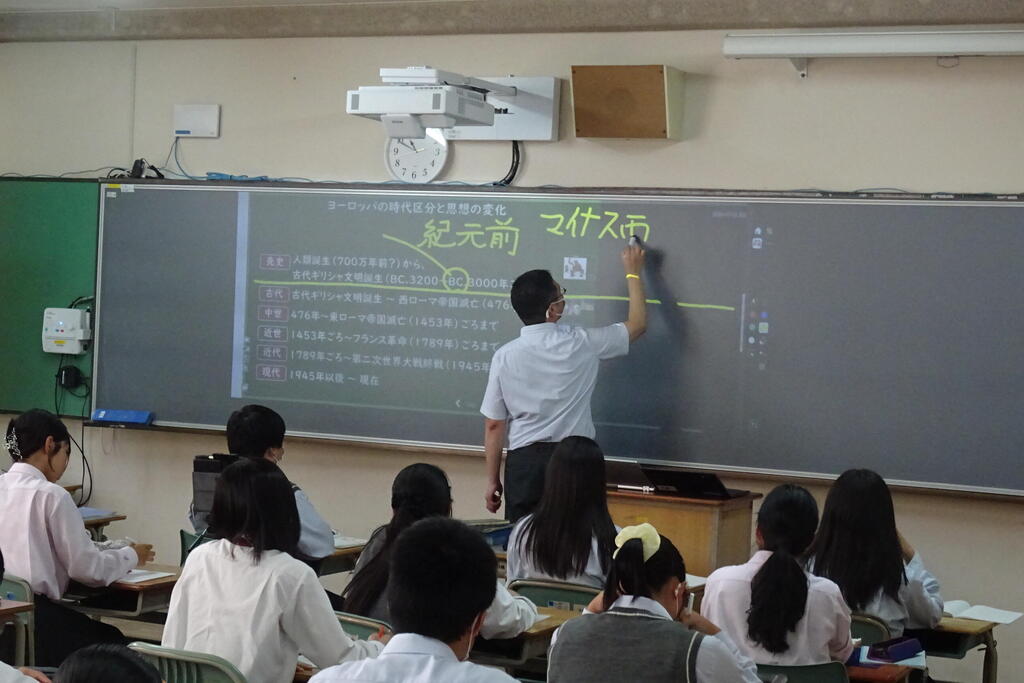 ヨーロッパの時代区分と思想の変化
紀元前 マイナス
先史 人類誕生(700万年前?)から、
古代ギリシャ文明誕生(BC.3200~BC.3000年
古代 古代ギリシャ文明誕生 ~ 西ローマ帝国滅亡(476
中世 476年~東ローマ帝国滅亡(1453年)ごろまで
近世 1453年ごろ~フランス革命(1789年)ごろまで
近代 1789年ごろ~第二次世界大戦終戦(1945年
現代 1945年以後 ~ 現在